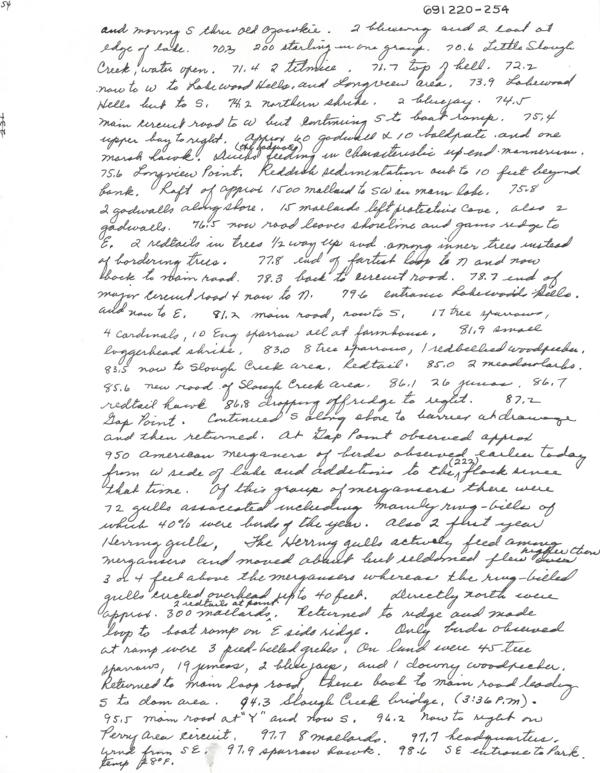 54
691220-254
and moving S thru old Ozawkie. 2 bluewing and 2 coot at
edge of lake. 70.3 200 starling in one group. 70.6 Little Slough
Creek, water open. 71.4 2 titmice. 71.7 top of hill. 72.2
now to W to Lakewood Hills, and Longview area. 73.9 Lakewood
Hills but to S. 74.2 northern shrike. 2 bluejay. 74.5
main circuit road to W but continuing S to boat ramp. 75.4
upper bay to right. Approx 60 gadwall & 10 baldpate and one
marsh hawk. Ducks (the gadwalls) feeding in characteristic up-end mannerism.
75.6 Longview Point. Reddish sedimentation out to 10 feet beyond
bank. Raft of approx 1500 mallard to SW in main lake. 75.8
2 gadwalls along shore. 15 mallards left protective cove, also 2
gadwalls. 76.5 now road leaves shoreline and gains ridge to
E. 2 redtails in trees 1/2 way up and among inner trees instead
of bordering trees. 77.8 end of farthest loop to N and now
back to main road. 78.3 back to circuit road. 78.7 end of
major circuit road & now to N. 79.6 entrance Lakewood Hills.
and now to E. 81.2 main road, now to S. 17 tree sparrows,
4 cardinals, 10 Eng sparrow all at farmhouse. 81.9 small
loggerhead shrike. 83.0 8 tree sparrows, 1 redbellied woodpecker.
83.5 now to Slough Creek area. Redtail. 85.0 2 meadowlarks.
85.6 new road of Slough Creek area. 86.1 26 juncos. 86.7
redtail hawk 86.8 dropping off ridge to right. 87.2
Gap Point. Continued S along shore to barrier at drawage
and then returned. At Gap Point observed approx
950 american mergansers of birds observed earlier today
from W side of lake and additions to the (222) flock since
that time. Of this group of mergansers there were
72 gulls associated including mainly ring-bills of
which 40% were birds of the year. Also 2 first year
Herring gulls, The Herring gulls actively feed among
mergansers and moved about but seldomed flew higher than
3 or 4 feet above the mergansers whereas the ring-billed
gulls circled overhead up to 40 feet. Directly north were
approx. 300 mallards. 2 redtails at point. Returned to ridge and made
loop to boat ramp on E side ridge. Only birds observed
at ramp were 3 pied-billed grebes. On land were 45 tree
sparrows, 19 juncos, 2 bluejays, and 1 downy woodpecker.
Returned to main loop road, thence back to main road leading
S to dam area. 94.3 Slough Creek bridge. (3:36 P.M).
95.5 main road at "Y" and now S. 96.2 now to right on
Perry Area circuit. 97.7 8 mallards. 97.7 headquarters.
Wind from SE. 97.9 sparrow hawk. 98.6 SE entrance to Park.
temp 28°F.